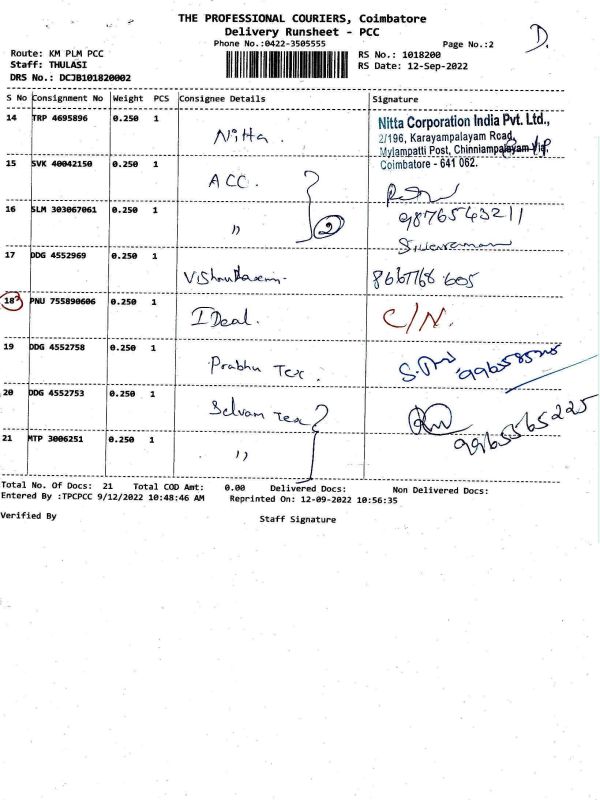 THE PROFESSIONAL COURIERS, Coimbatore
Delivery Runsheet - PCC
Phone No.:0422-3505555
Page No.:2
D.
Route: KM PLM PCC
RS No.: 1018200
Staff: THULASI
RS Date: 12-Sep-2022
DRS No.: DCJB101820002
S No Consignment No Weight PCS Consignee Details Signature
14 TRP 4695896 0.250 1 Nitta.
Nitta Corporation India Pvt. Ltd.,
2/196, Karayampalayam Road,
Mylampatti Post, Chinniampalayam Via,
Coimbatore - 641 062.
15 SVK 40042150 0.250 1 ACC.
16 SLM 303067061 0.250 1 " 2
9876543211
17 DDG 4552969 0.250 1
8667768 605
18 PNU 755890606 0.250 1 IDeal. C/N.
19 DDG 4552758 0.250 1 Prabhu Tex.
20 DDG 4552753 0.250 1 Selvam Tex
9965565225
21 MTP 3006251 0.250 1 "
Total No. Of Docs: 21 Total COD Amt: 0.00 Delivered Docs: Non Delivered Docs:
Entered By :TPCPCC 9/12/2022 10:48:46 AM Reprinted On: 12-09-2022 10:56:35
Verified By
Staff Signature